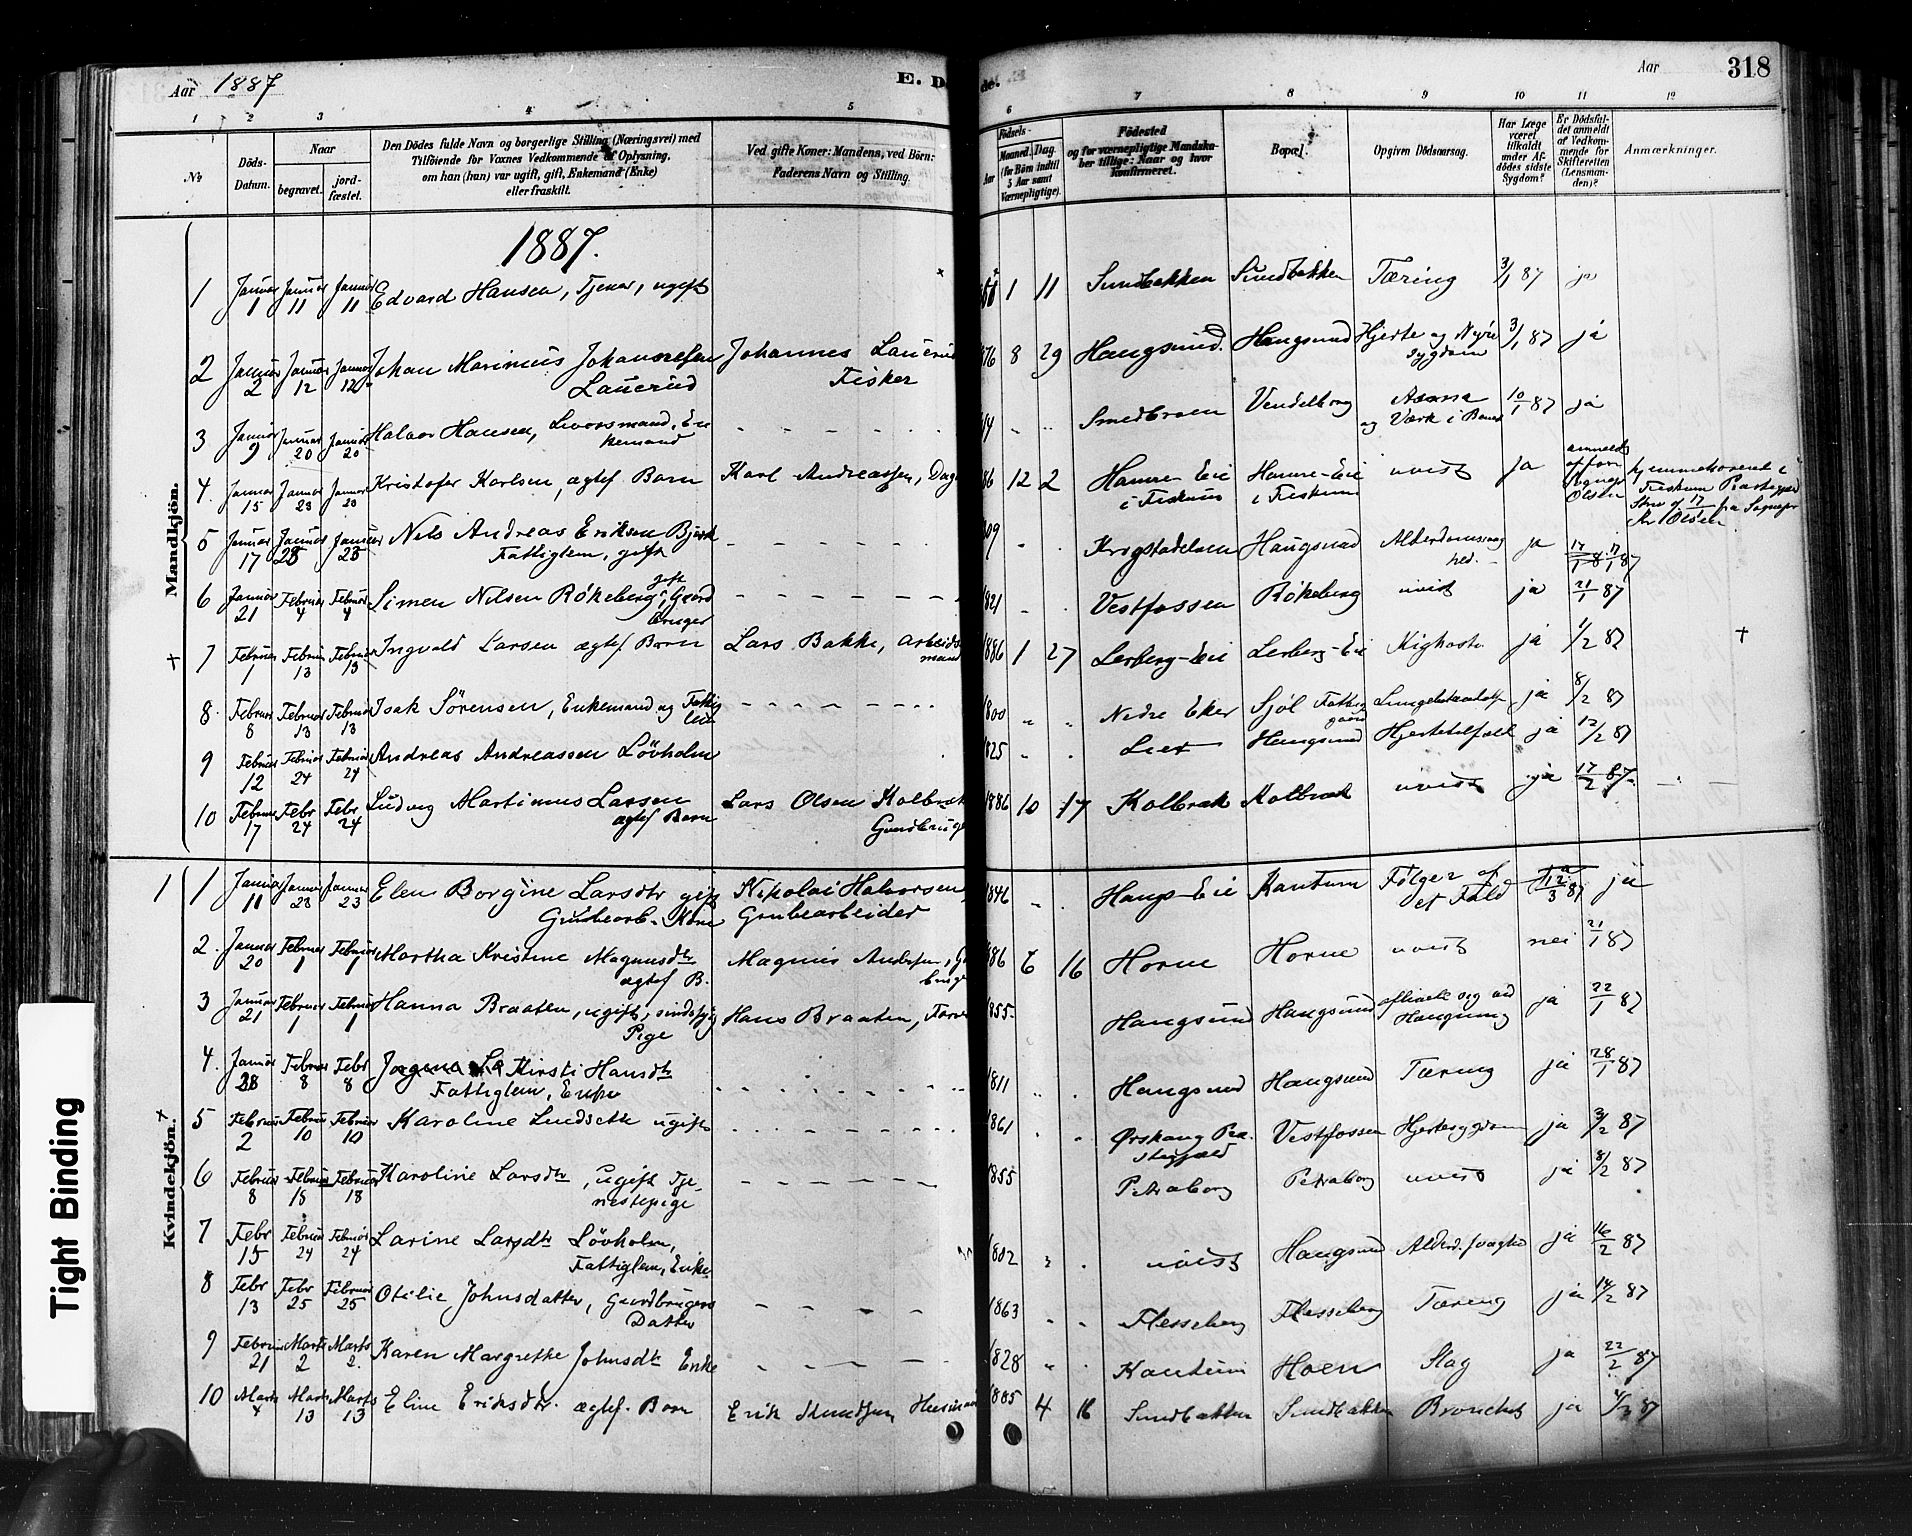 Aar 1887
E. Dø
de.
Aar
318
1 2 3 4 5 6 7 8 9 10 11 12
No
Döds-Datum.
Naar
begravet.
jord-fæstet.
Den Dödes fulde Navn og borgerlige Stilling (Næringsvei) med
Tilföiende for Voxnes Vedkommende af Oplysning,
om han (hun) var ugift, gift, Enkemand (Enke)
eller fraskilt.
Ved gifte Koner: Mandens, ved Börn:
Faderens Navn og Stilling.
Födsels-
Aar
Maaned. Dag.
(for Börn indtil
5 Aar samt
Værnepligtige).
Födested
og for værnepligtige Mandska-
ber tillige: Naar og hvor
konfirmeret.
Bopæl.
Opgiven Dödsaarsag.
Har Læge
været
tilkaldt
under Af-
dödes sidste
Sygdom?
Er Dödsfal-
det anmeldt
af Vedkom-
mende for
Skifteretten
(Lensman-
den)?
Anmærkninger.
Mandkjön.
1887.
1 Januar 1 Januar 11 Januar 11 Edvard Hansen, Tjener, ugift 1 11 Sundbakken Sundbakken Tæring 3/1 87 ja
2 Januar 2 Januar 12 Januar 12 Johan Marinius Johannesen Lauerud Johannes Lauerud Fisker 876 8 29 Haugsund Haugsund Hjerte og Nyresygdom 3/1 87 ja
3 Januar 9 Januar 20 Januar 20 Halvor Hansen, Enkemand Vendelborg og Værk i Benet 10/1 87 ja
4. Januar 15 Januar 23 Januar 23 Kristofer Karlsen, ægtef Barn Karl Andreassen, Dag 86 12 2 Hamre-Eie i Fiskum Hamre-Eie i Fiskum uvist ja Olsen
5 Januar 17 Januar 25 Januar 25 Nels Andreas Eriksen Bjerk Fattiglem, gift 809 Krogstadelven Haugsund Alderdomssvaghed. ja 17/1 87
6 Januar 21 Februar 4 Februar 4 Simen Nilsen Rökeberg gift, Gaardbruger 1821 Vestfossen Rökeberg uvist ja 21/1 87
+ 7 Februar 1 Februar 13 Februar 13 Ingvald Larsen ægtef Barn Lars Bakke, Arbeidsmand 1886 1 27 Lerberg-Eie Lerberg-Eie Kighoste ja 1/2 87 +
8. Februar 8 Februar 13 Februar 13 Isak Sörensen, Enkemand og Fattiglem 1800 Nedre Eker Sjöl Fattiggaard ja 8/2 87
9 Februar 12 Februar 24 Februar 24 Andreas Andreassen Lövholm 1825 Lier Haugsund Hjertetilfæld ja 12/2 87
10 Februar 17 Febr 24 Febr 24 Ludvig Martinius Larsen ægtef Barn Lars Olsen Kolbræk Gaardbruger 1886 10 17 Kolbræk Kolbræk uvist ja 17/2 87
Kvindekjön.
1 1 Januar 11 Januar 23 Januar 23 Elen Borgine Larsdtr gift Grubearb. Kone Nikolai Halvorsen Grubearbeider 1846 Haugs-Eie Kantum Følger af et Fald ja
2. Januar 20 Februar 1 Februar 1 Martha Kristine Magnusdtr ægtef B. Magnus Andersen, 886 6 16 Horne Horne uvist nei 21/1 87
3 Januar 21 Februar 1 Februar 1 Hanna Braaten, ugift, sindssyg Pige Hans Braaten, Farver 1855 Haugsund Haugsund ja 22/1 87
4. Januar 28 Februar 8 Febr 8 Kirsti Hansdtr Fattiglem, Enke 1811 Haugsund Haugsund Tæring ja 28/1 87
5 Februar 2 Februar 10 Februar 10 Karoline Lindseth ugift 1861 Ørskaug Præstegjæld Vestfossen Hjertesygdom ja 3/2 87
6 Februar 8 Februar 18 Februar 18 Karoline Larsdtr, ugift Tjenestepige 1855 Petraborg Petraborg uvist ja 8/2 87
7 Febr 15 Februar 24 Februar 24 Larine Larsdtr Lövholm, Fattiglem, Enke 1802 uvist Haugsund Alderd. svaghed ja 16/2 87
8 Febr 13 Febr 25 Februar 25 Otilie Johnsdatter, Gaardbrugers Datter 1863 Flesseberg Flesseberg Tæring ja 14/2 87
9 Februar 21 Marts 2 Marts 2. Karen Margrethe Johnsdtr Enke 1828 Kantum Hoen Slag ja 22/2 87
10 Marts 4 Marts 13 Marts 13 Eline Eriksdtr. ægtef. Barn Erik Knudsen 1885 4 16 Sundbakken Sundbakken Bronchit ja
Tight Binding